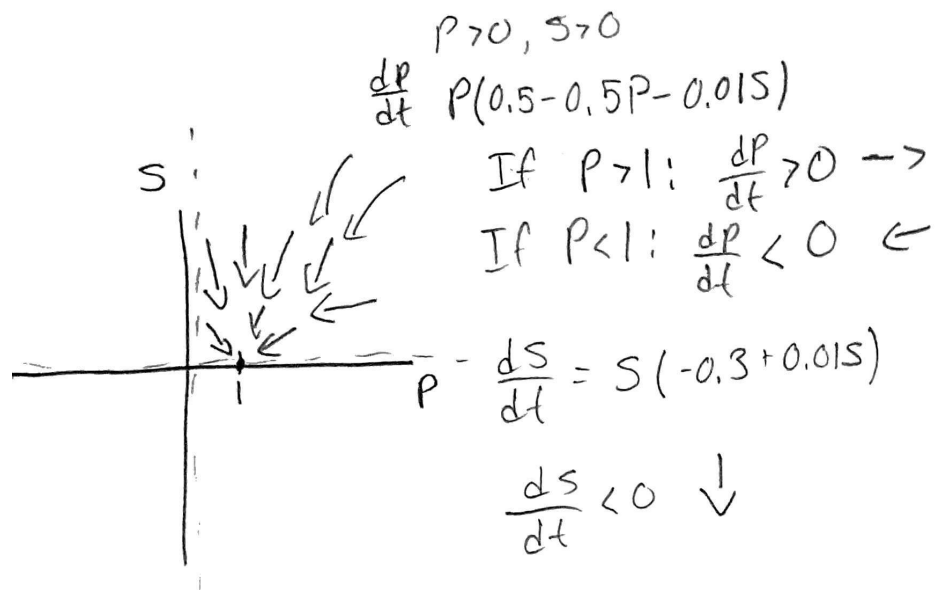 P>0, S>0
dP/dt P(0.5-0.5P-0.01S)
If P>1: dP/dt >0 ->
If P<1: dP/dt < 0 ←
S
P
1
dS/dt = S(-0.3+0.01S)
dS/dt <0 ↓